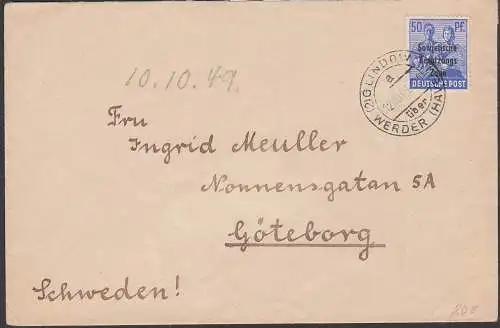 50 PF.
Sowjetische
Besatzungs
Zone
DEUTSCHE POST
(2) GLINDOW
a
über
WERDER (HAVEL)
10.10.49
Fru
Ingrid Meuller
Nonnensgatan 5A
Göteborg
Schweden!